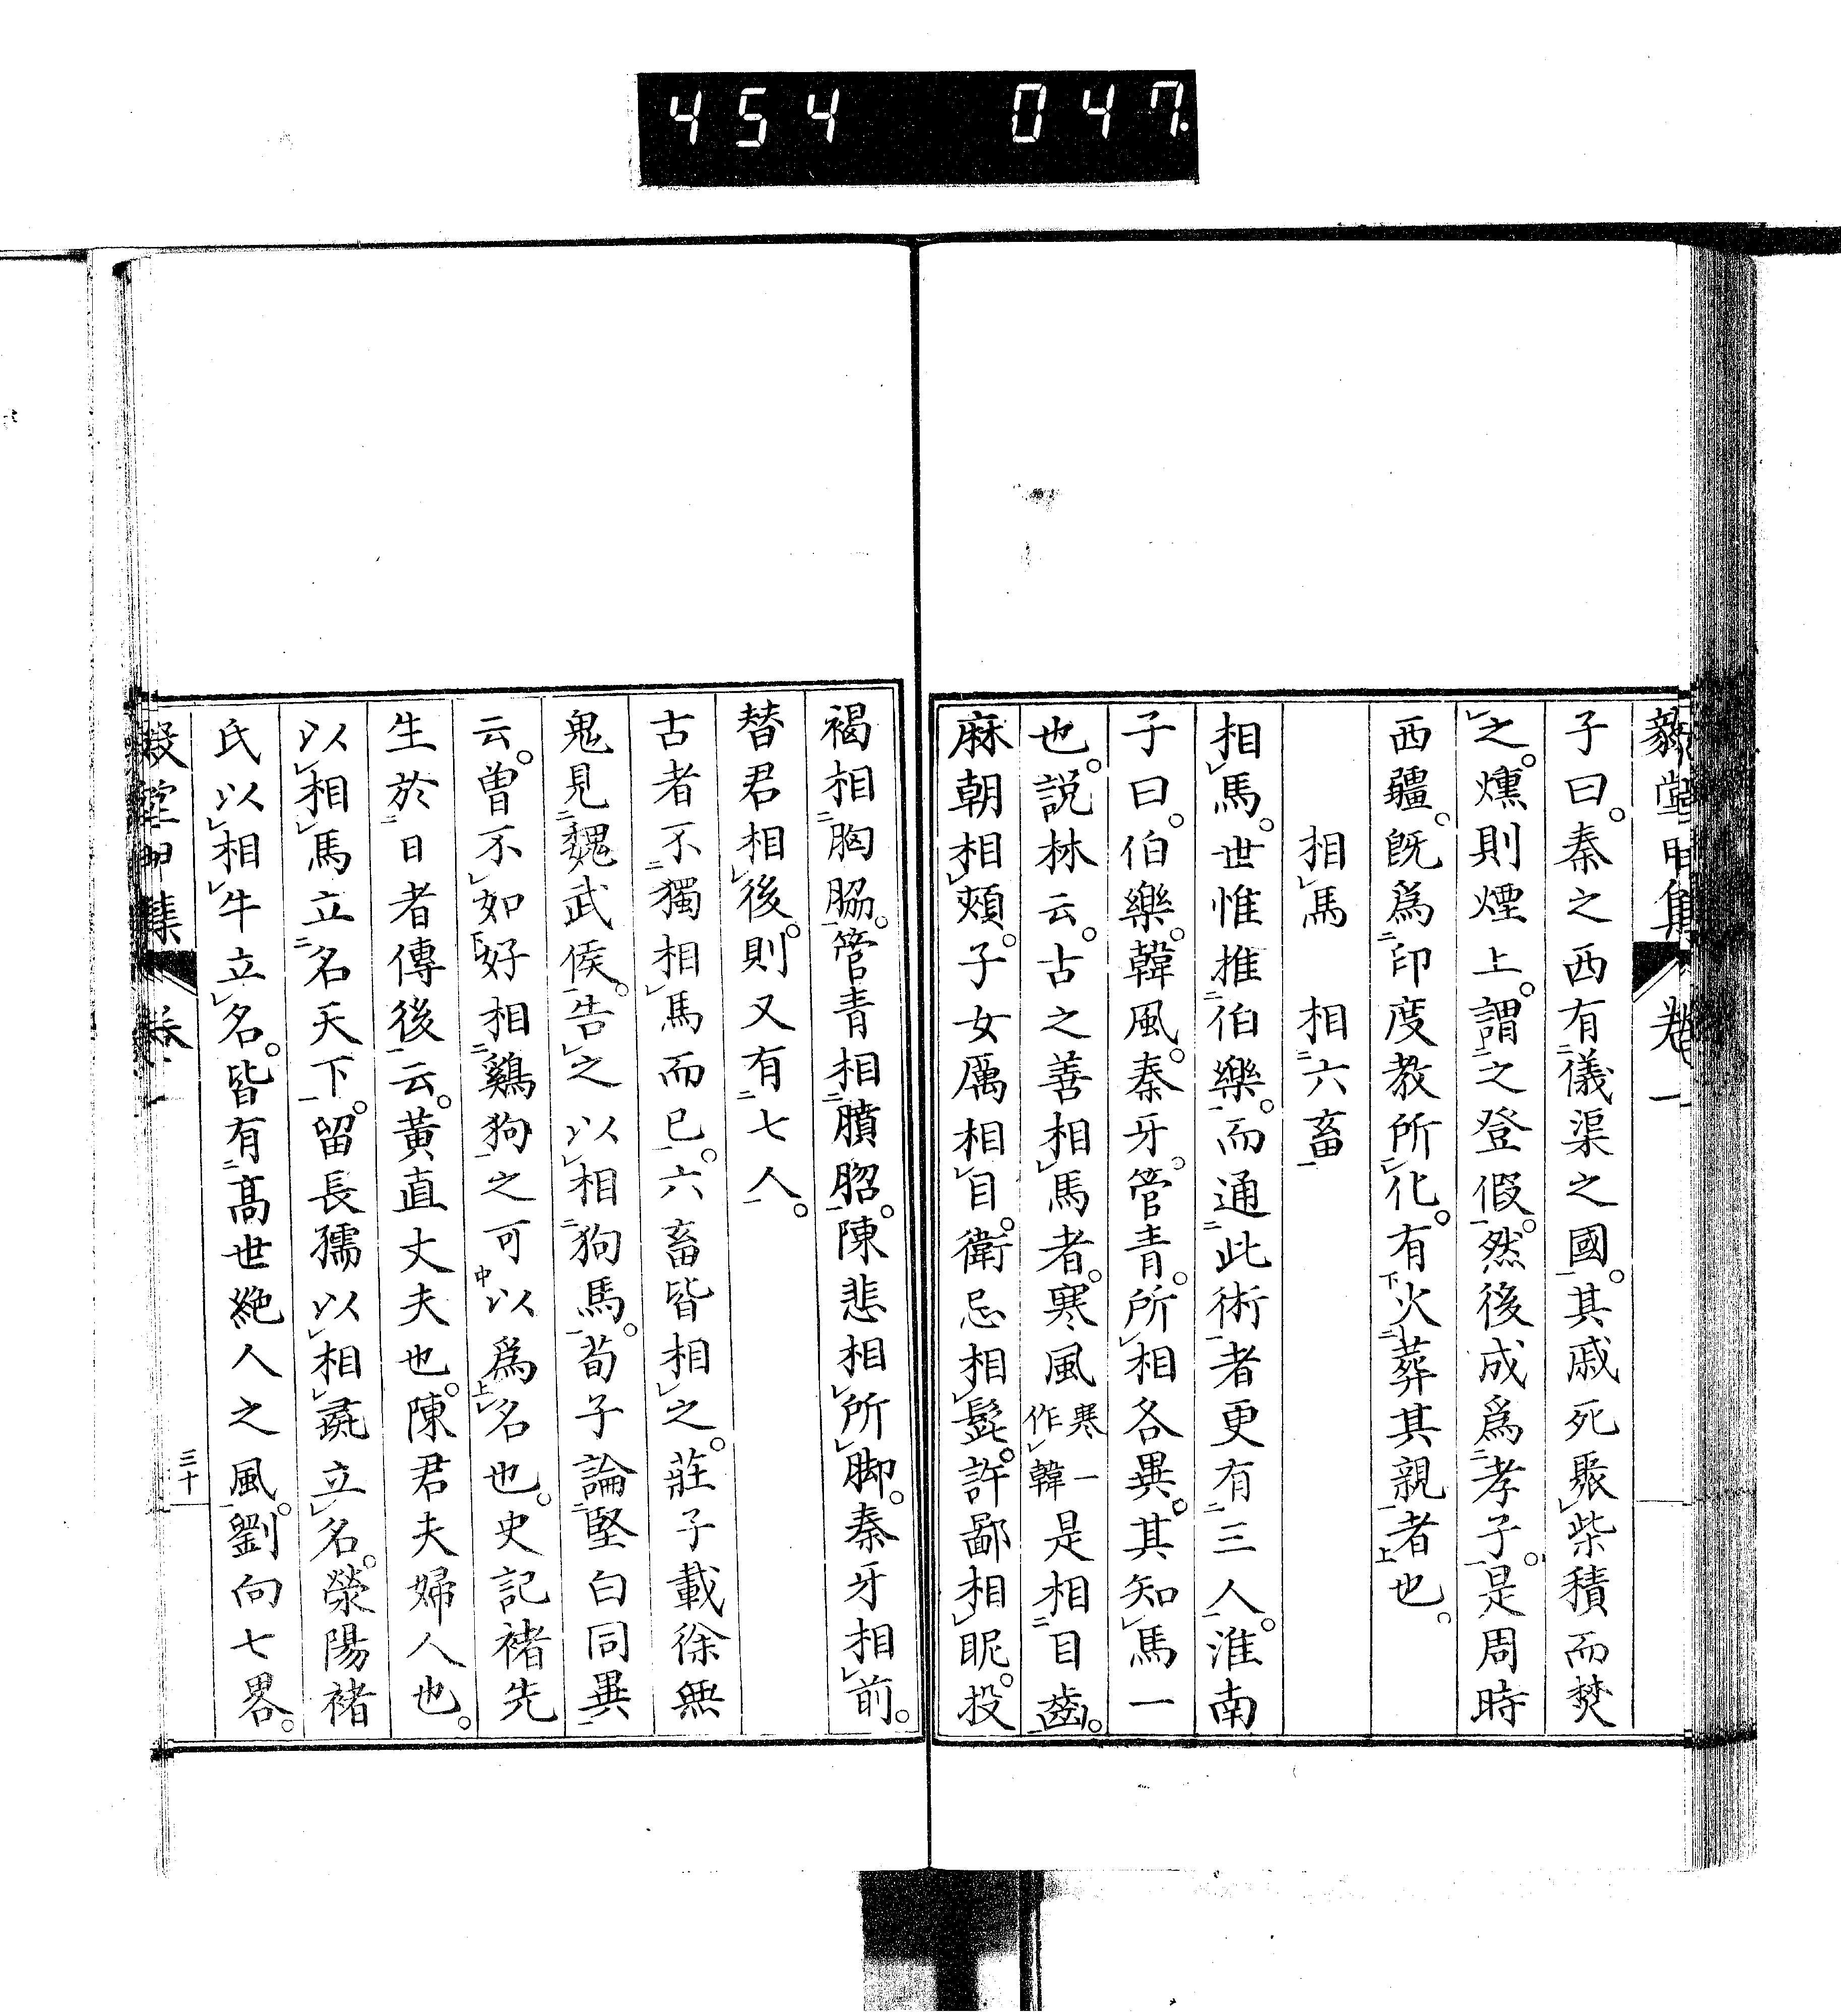 454 047.
毅堂甲集 卷一
子曰。秦之西有儀渠之國。其戚死聚柴積而焚
之。燻則煙上。謂之登假。然後成爲孝子。是周時
西疆。既爲印度教所化。有火葬其親者也。
相馬 相六畜
相馬。世惟推伯樂。而通此術者更有三人。淮南
子曰。伯樂。韓風。秦牙。管青。所相各異。其知馬一
也。説林云。古之善相馬者。寒風寒一作韓是相目齒。
麻朝相頰。子女厲相目。衛忌相髭。許鄙相䀢。投
褐相胸脇。管青相膹䏚。陳悲相所脚。秦牙相前。
替君相後。則又有七人。
古者不獨相馬而已。六畜皆相之。莊子載徐無
鬼見魏武侯。告之以相狗馬。荀子論堅白同異
云。曽不如好相鷄狗之可以爲名也。史記褚先
生於日者傳後云。黃直丈夫也。陳君夫婦人也。
以相馬立名天下。留長孺以相彘立名。滎陽褚
氏以相牛立名。皆有高世絶人之風。劉向七畧。
毅堂甲集 卷一 三十